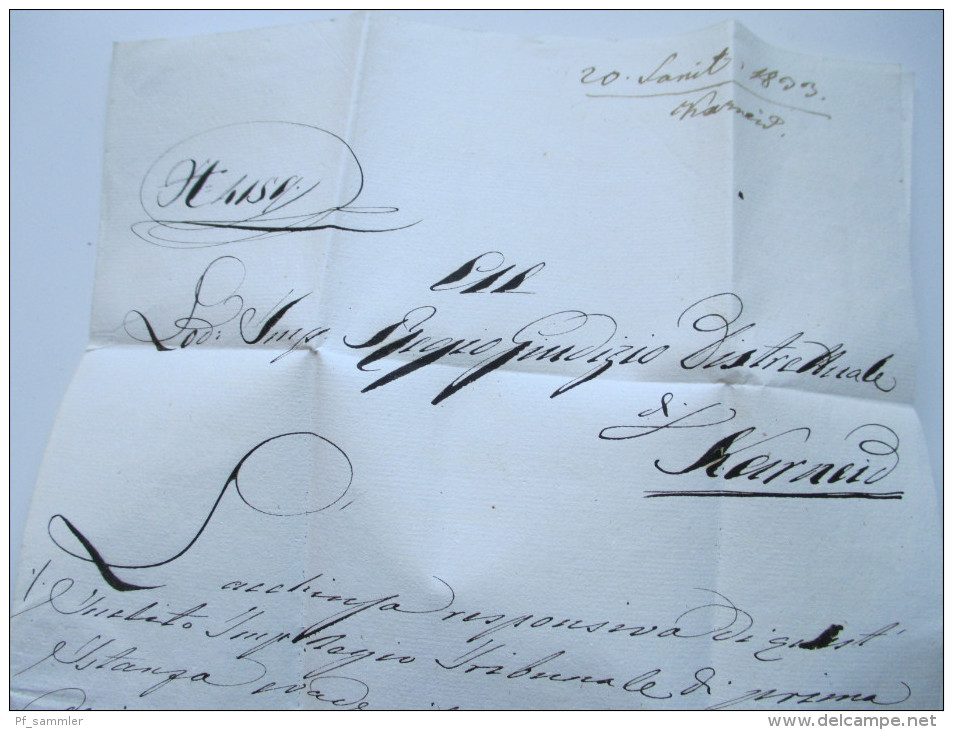 20. Sanit. 1833.
Karneid.
All
Lod: Imp. Regio Giudizio Distrettuale
di
Karneid
L'acchiusa responsiva di quest'
Inclito Imp. Regio Tribunale di prima
Istanza evade
Pf_sammler
www.delcampe.net